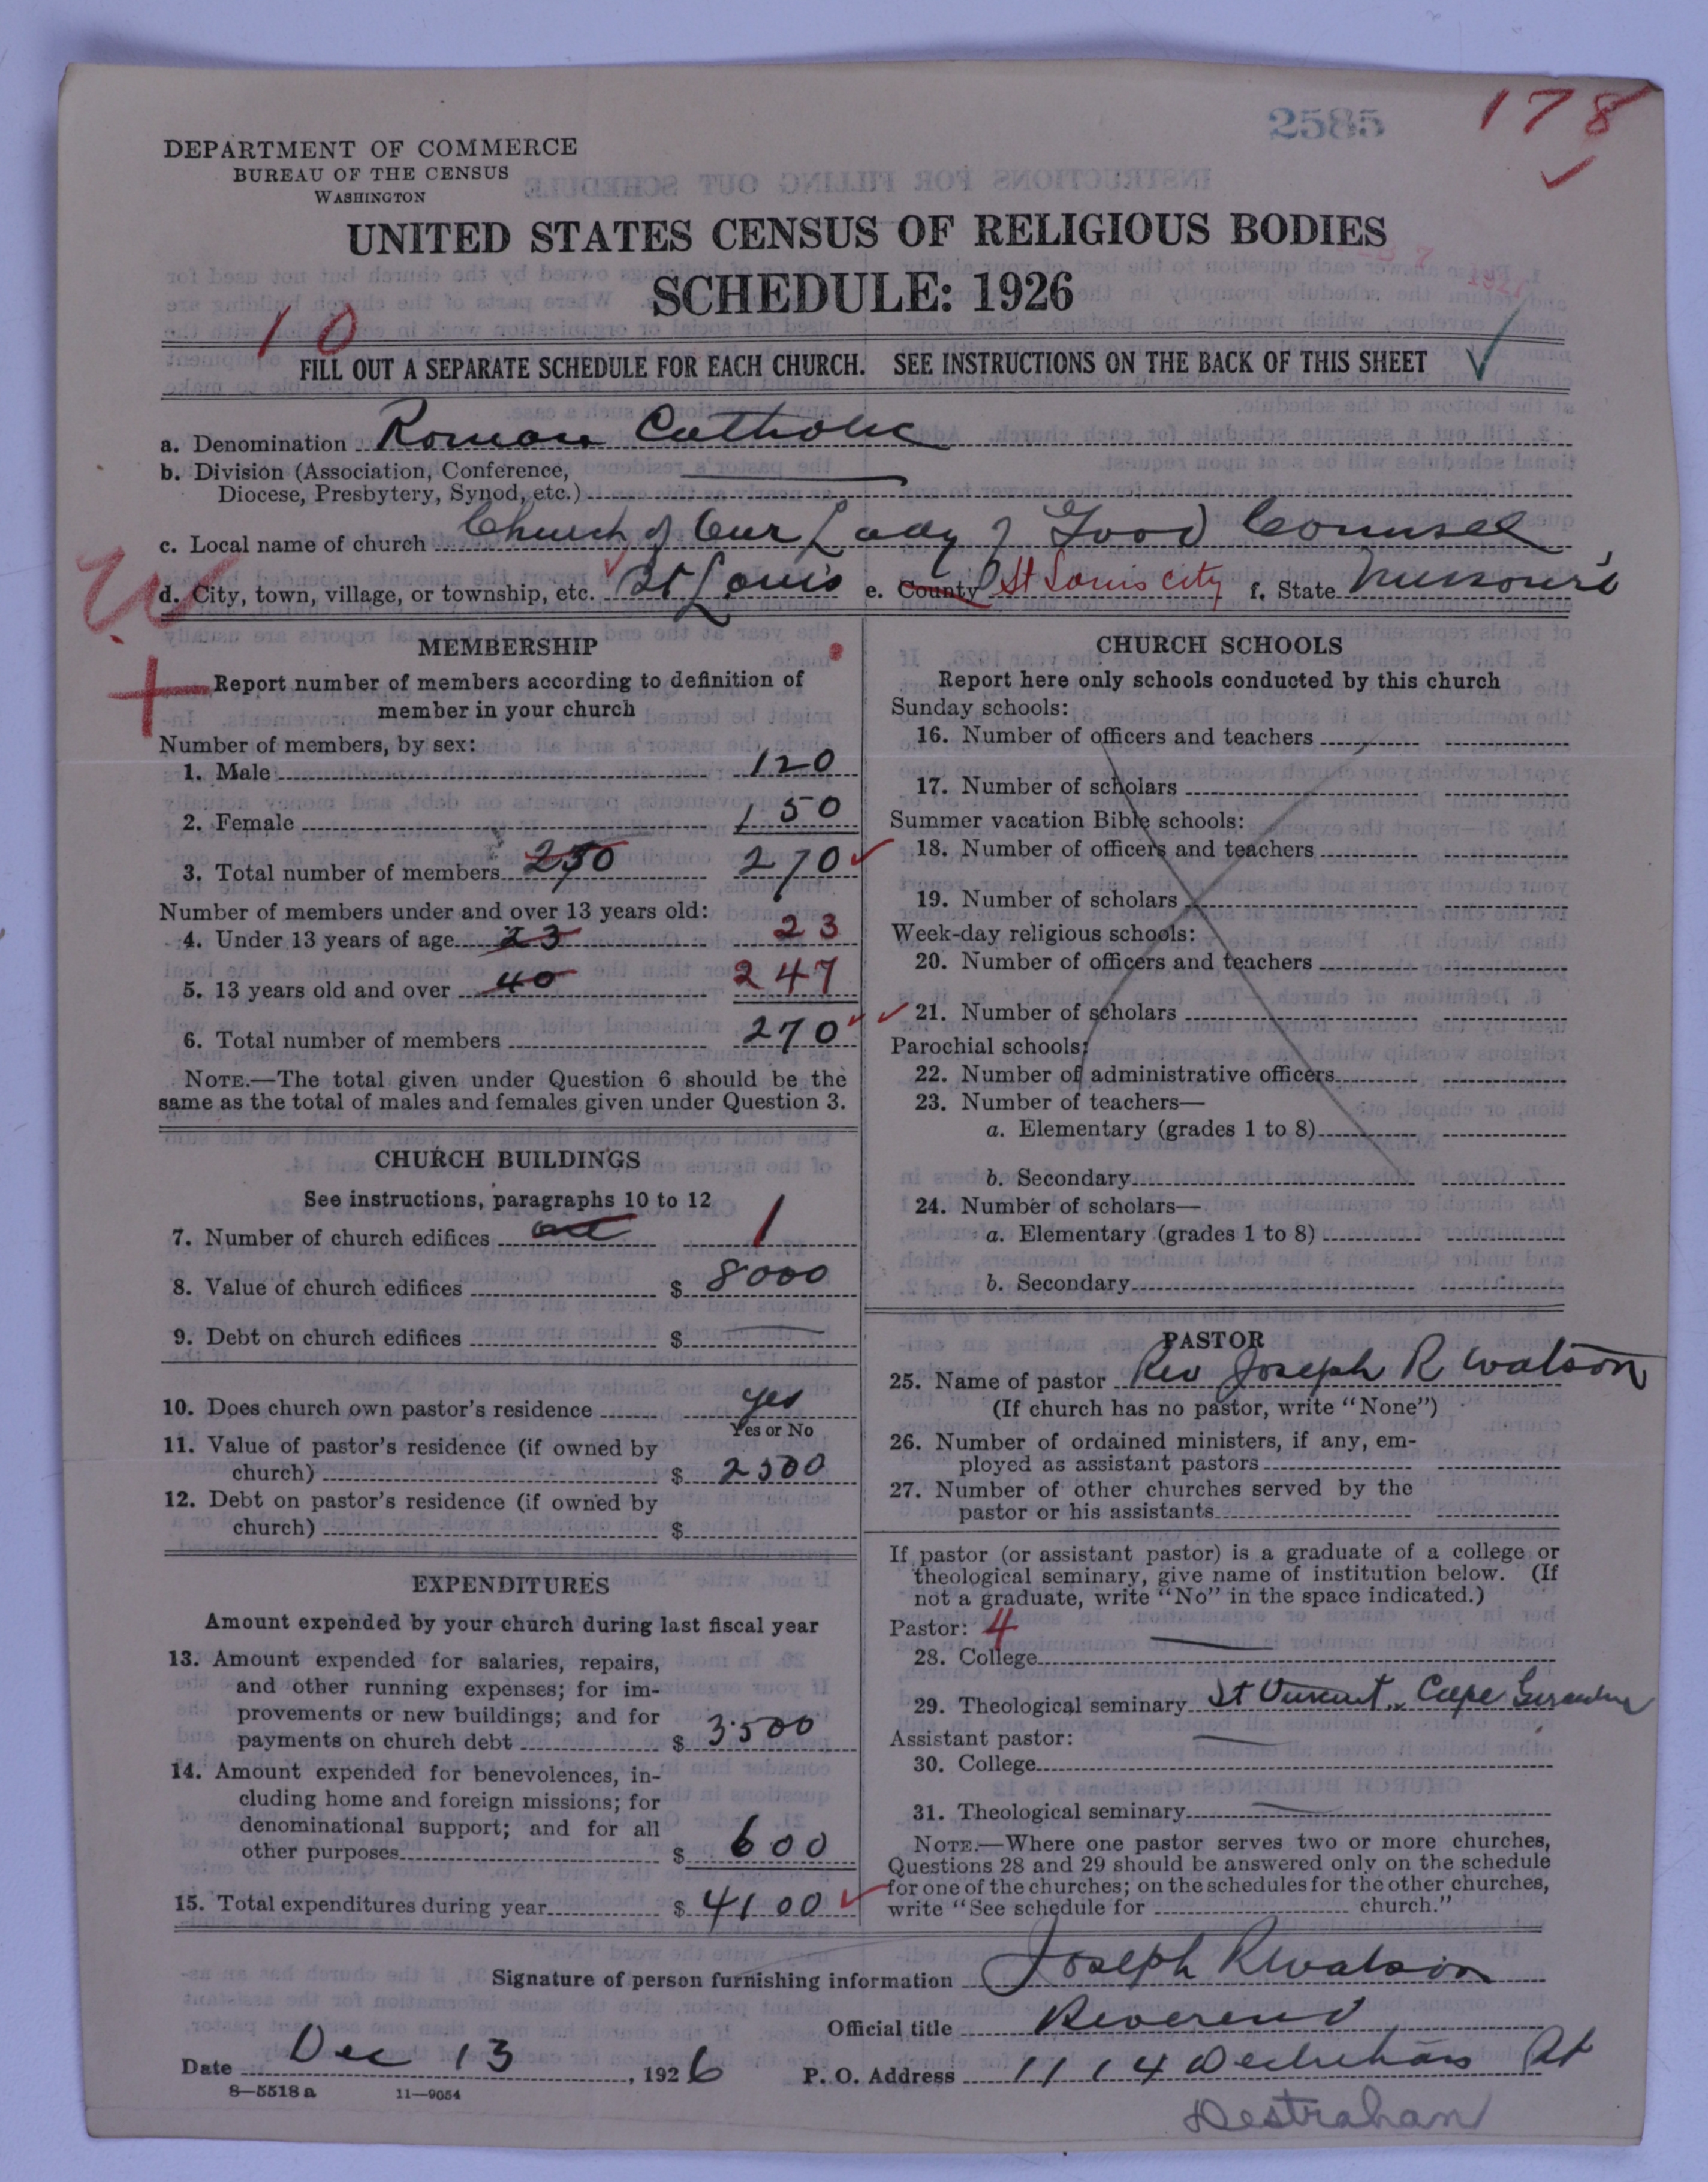 2585
178
DEPARTMENT OF COMMERCE
BUREAU OF THE CENSUS
WASHINGTON
UNITED STATES CENSUS OF RELIGIOUS BODIES
SCHEDULE: 1926
10
FILL OUT A SEPARATE SCHEDULE FOR EACH CHURCH. SEE INSTRUCTIONS ON THE BACK OF THIS SHEET
a. Denomination Roman Catholic
b. Division (Association, Conference,
Diocese, Presbytery, Synod, etc.)
c. Local name of church Church of Our Lady of Good Counsel
d. City, town, village, or township, etc. St Louis e. County St Louis City f. State Missouri
MEMBERSHIP
Report number of members according to definition of
member in your church
Number of members, by sex:
1. Male 120
2. Female 150
3. Total number of members 250 270
Number of members under and over 13 years old:
4. Under 13 years of age 23 23
5. 13 years old and over 40 247
6. Total number of members 270
NOTE.—The total given under Question 6 should be the
same as the total of males and females given under Question 3.
CHURCH BUILDINGS
See instructions, paragraphs 10 to 12
7. Number of church edifices one 1
8. Value of church edifices $ 8000
9. Debt on church edifices $
10. Does church own pastor's residence yes
Yes or No
11. Value of pastor's residence (if owned by
church) $ 2500
12. Debt on pastor's residence (if owned by
church) $
EXPENDITURES
Amount expended by your church during last fiscal year
13. Amount expended for salaries, repairs,
and other running expenses; for im-
provements or new buildings; and for
payments on church debt $ 3500
14. Amount expended for benevolences, in-
cluding home and foreign missions; for
denominational support; and for all
other purposes $ 600
15. Total expenditures during year $ 4100
CHURCH SCHOOLS
Report here only schools conducted by this church
Sunday schools:
16. Number of officers and teachers
17. Number of scholars
Summer vacation Bible schools:
18. Number of officers and teachers
19. Number of scholars
Week-day religious schools:
20. Number of officers and teachers
21. Number of scholars
Parochial schools:
22. Number of administrative officers
23. Number of teachers—
a. Elementary (grades 1 to 8)
b. Secondary
24. Number of scholars—
a. Elementary (grades 1 to 8)
b. Secondary
PASTOR
25. Name of pastor Rev Joseph R Watson
(If church has no pastor, write "None")
26. Number of ordained ministers, if any, em-
ployed as assistant pastors
27. Number of other churches served by the
pastor or his assistants
If pastor (or assistant pastor) is a graduate of a college or
theological seminary, give name of institution below. (If
not a graduate, write "No" in the space indicated.)
Pastor: 4
28. College
29. Theological seminary St Vincent Cape
Assistant pastor:
30. College
31. Theological seminary
NOTE.—Where one pastor serves two or more churches,
Questions 28 and 29 should be answered only on the schedule
for one of the churches; on the schedules for the other churches,
write "See schedule for church."
Signature of person furnishing information Joseph R Watson
Official title Reverend
Date Dec 13, 1926 P. O. Address 1114 St
8—5518a 11—9054
Destrahan